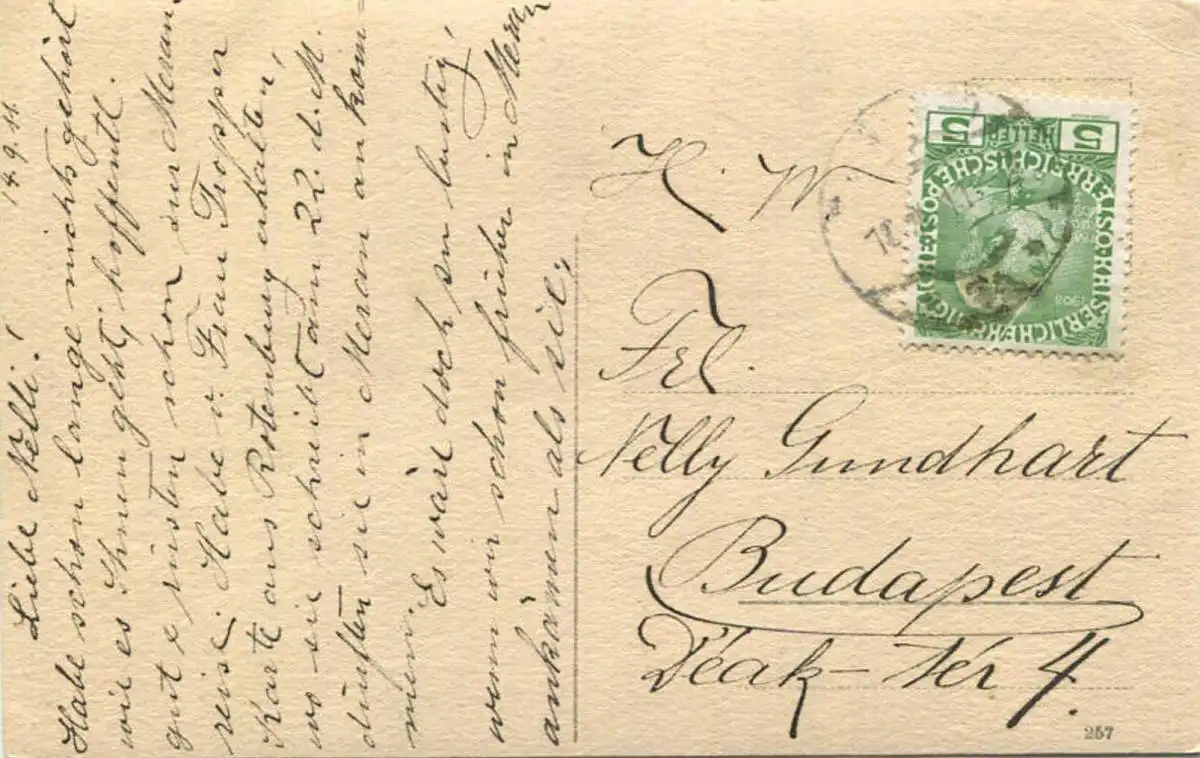 14 9. 11.
Liebe Nelli!
Habe schon lange nichts gehört
wie es Ihnen geht, hoffentl.
gut & rüsten schon zur Meran-
reise. Habe v. Frau Tropper
Karte aus Rotenburg erhalten,
wo sie schreibt am 22. d. M.
dürften sie in Meran ankom-
men.
Es wäre doch sn lustig,
wenn wir schon früher in Meran
ankämen als sie,
H. W.
Frl.
Nelly Gundhart
Budapest
Déak-tér 4.
5 HELLER 5
KAISERLICHE KÖNIGLICHE ÖSTERREICHISCHE POST
1908
257